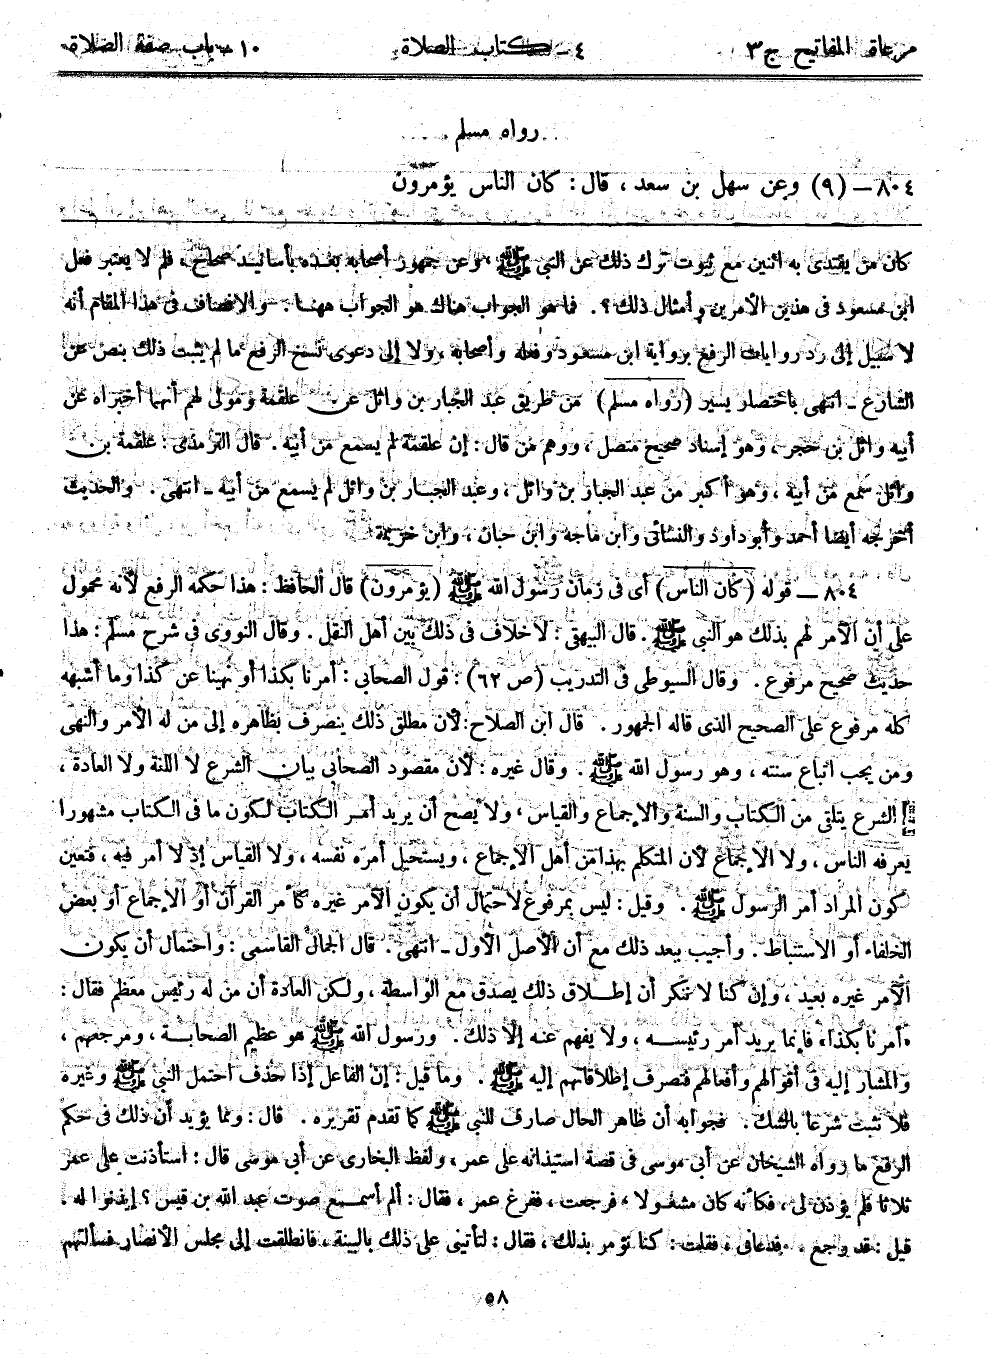 مرعاة المفاتيح ج٣ ٤- كتاب الصلاة ١٠- باب صفة الصلاة
رواه مسلم .
٨٠٤ – (٩) وعن سهل بن سعد ، قال : كان الناس يؤمرون
كان من يقتدى به اثنين مع ثبوت ترك ذلك عن النبي ﷺ ، وعن جمهور أصحابه بعده بأسانيد صحاح ، فلم لا يعتبر فعل
ابن مسعود فى هذين الأمرين وأمثال ذلك ؟ . فما هو الجواب هناك هو الجواب ههنا . والإنصاف فى هذا المقام أنه
لا سبيل إلى رد روايات الرفع برواية ابن مسعود وفعله وأصحابه ، ولا إلى دعوى نسخ الرفع ما لم يثبت ذلك بنص عن
الشارع - انتهى باختصار يسير (رواه مسلم) من طريق عبد الجبار بن وائل عن علقمة ومولى لهم أنهما أخبراه عن
أبيه وائل بن حجر ، وهو إسناد صحيح متصل ، ووهم من قال : إن علقمة لم يسمع من أبيه . قال الترمذى : علقمة بن
وائل سمع من أبيه ، وهو أكبر من عبد الجبار بن وائل ، وعبد الجبار بن وائل لم يسمع من أبيه - انتهى . والحديث
أخرجه أيضا أحمد وأبوداود والنسائى وابن ماجه وابن حبان ، وابن خزيمة
٨٠٤ – قوله (كان الناس) أى فى زمان رسول الله ﷺ (يؤمرون) قال الحافظ : هذا حكمه الرفع لأنه محمول
على أن الآمر لهم بذلك هو النبي ﷺ . قال البيهقى : لا خلاف فى ذلك بين أهل النقل . وقال النووى فى شرح مسلم : هذا
حديث صحيح مرفوع . وقال السيوطى فى التدريب (ص ٦٢) : قول الصحابى : أمرنا بكذا أو نهينا عن كذا وما أشبهه
كله مرفوع على الصحيح الذى قاله الجمهور . قال ابن الصلاح : لأن مطلق ذلك ينصرف بظاهره إلى من له الأمر والنهى
ومن يجب اتباع سنته ، وهو رسول الله ﷺ . وقال غيره : لأن مقصود الصحابى بيان الشرع لا اللغة ولا العادة ،
الشرع يتلقى من الكتاب والسنة والإجماع والقياس ، ولا يصح أن يريد أمر الكتاب لكون ما فى الكتاب مشهورا
يعرفه الناس ، ولا الإجماع لأن المتكلم بهذا من أهل الإجماع ، ويستحيل أمره نفسه ، ولا القياس إذ لا أمر فيه ، فتعين
كون المراد أمر الرسول ﷺ . وقيل : ليس بمرفوع لاحتمال أن يكون الآمر غيره كأمر القرآن أو الإجماع أو بعض
الخلفاء أو الاستنباط . وأجيب ببعد ذلك مع أن الأصل الأول - انتهى . قال الجمال القاسمى : واحتمال أن يكون
الآمر غيره بعيد ، وإن كنا لا ننكر أن إطلاق ذلك يصدق مع الواسطة ، ولكن العادة أن من له رئيس معظم فقال :
«أمرنا بكذا» فإنما يريد أمر رئيسه ، ولا يفهم عنه إلا ذلك . ورسول الله ﷺ هو عظيم الصحابة ، ومرجعهم ،
والمشار إليه فى أقوالهم وأفعالهم فتصرف إطلاقاتهم إليه ﷺ . وما قيل : إن الفاعل إذا حذف احتمل النبي ﷺ وغيره
فلا نثبت شرعا بالشك . فجوابه أن ظاهر الحال صارف للنبي ﷺ كما تقدم تقريره . قال : ومما يؤيد أن ذلك فى حكم
الرفع ما رواه الشيخان عن أبى موسى فى قصة استيذانه على عمر ، ولفظ البخارى عن أبى موسى قال : استأذنت على عمر
ثلاثا فلم يؤذن لى ، فكأنه كان مشغولا ، فرجعت ، ففرغ عمر ، فقال : ألم أسمع صوت عبد الله بن قيس ؟ إيذنوا له .
قيل : قد رجع ، فدعانى ، فقلت : كنا نؤمر بذلك ، فقال : لتأتينى على ذلك بالبينة ، فانطلقت إلى مجلس الأنصار فسألتهم
٥٨